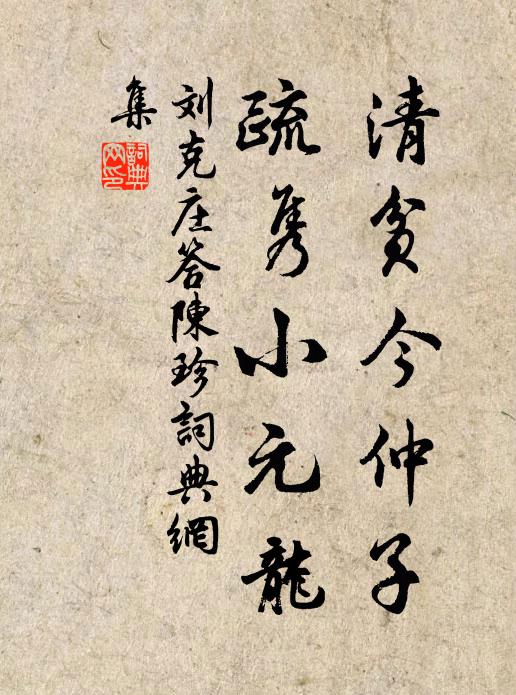 清貧今仲子
疏隽小元龍
刘克庄答陳珍詞典網
集
詞典網印